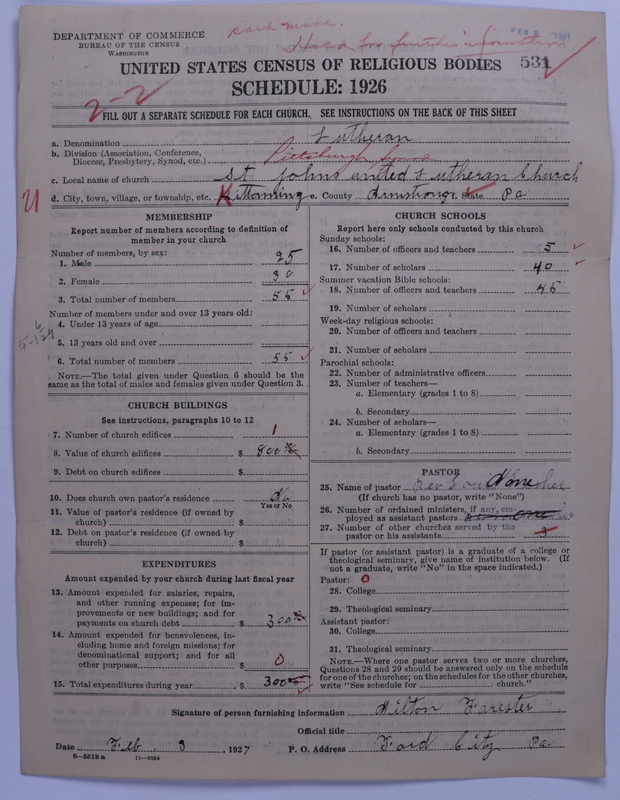 card made.
Held for further information
FEB 8
DEPARTMENT OF COMMERCE
BUREAU OF THE CENSUS
WASHINGTON
UNITED STATES CENSUS OF RELIGIOUS BODIES 531
SCHEDULE: 1926
2-2
FILL OUT A SEPARATE SCHEDULE FOR EACH CHURCH. SEE INSTRUCTIONS ON THE BACK OF THIS SHEET
a. Denomination Lutheran
b. Division (Association, Conference,
Diocese, Presbytery, Synod, etc.) Pittsburgh Synod
c. Local name of church St Johns united Lutheran Church
d. City, town, village, or township, etc. Kittanning e. County Armstrong f. State Pa
U
MEMBERSHIP
Report number of members according to definition of
member in your church
Number of members, by sex:
1. Male 25
2. Female 30
3. Total number of members 55
Number of members under and over 13 years old:
4. Under 13 years of age
5. 13 years old and over
6. Total number of members 55
NOTE.—The total given under Question 6 should be the
same as the total of males and females given under Question 3.
CHURCH BUILDINGS
See instructions, paragraphs 10 to 12
7. Number of church edifices 1
8. Value of church edifices $ 800
9. Debt on church edifices $
10. Does church own pastor's residence No
Yes or No
11. Value of pastor's residence (if owned by
church) $
12. Debt on pastor's residence (if owned by
church) $
EXPENDITURES
Amount expended by your church during last fiscal year
13. Amount expended for salaries, repairs,
and other running expenses; for im-
provements or new buildings; and for
payments on church debt $ 300
14. Amount expended for benevolences, in-
cluding home and foreign missions; for
denominational support; and for all
other purposes $ 0
15. Total expenditures during year $ 300
CHURCH SCHOOLS
Report here only schools conducted by this church
Sunday schools:
16. Number of officers and teachers 5
17. Number of scholars 40
Summer vacation Bible schools:
18. Number of officers and teachers 45
19. Number of scholars
Week-day religious schools:
20. Number of officers and teachers
21. Number of scholars
Parochial schools:
22. Number of administrative officers
23. Number of teachers—
a. Elementary (grades 1 to 8)
b. Secondary
24. Number of scholars—
a. Elementary (grades 1 to 8)
b. Secondary
PASTOR
25. Name of pastor None
(If church has no pastor, write "None")
26. Number of ordained ministers, if any, em-
ployed as assistant pastors
27. Number of other churches served by the
pastor or his assistants 3
If pastor (or assistant pastor) is a graduate of a college or
theological seminary, give name of institution below. (If
not a graduate, write "No" in the space indicated.)
Pastor: 0
28. College
29. Theological seminary
Assistant pastor:
30. College
31. Theological seminary
NOTE.—Where one pastor serves two or more churches,
Questions 28 and 29 should be answered only on the schedule
for one of the churches; on the schedules for the other churches,
write "See schedule for church."
Signature of person furnishing information Hilton Forester
Official title
Date Feb. 3, 1927 P. O. Address Ford City Pa
8—5518a 11—9024